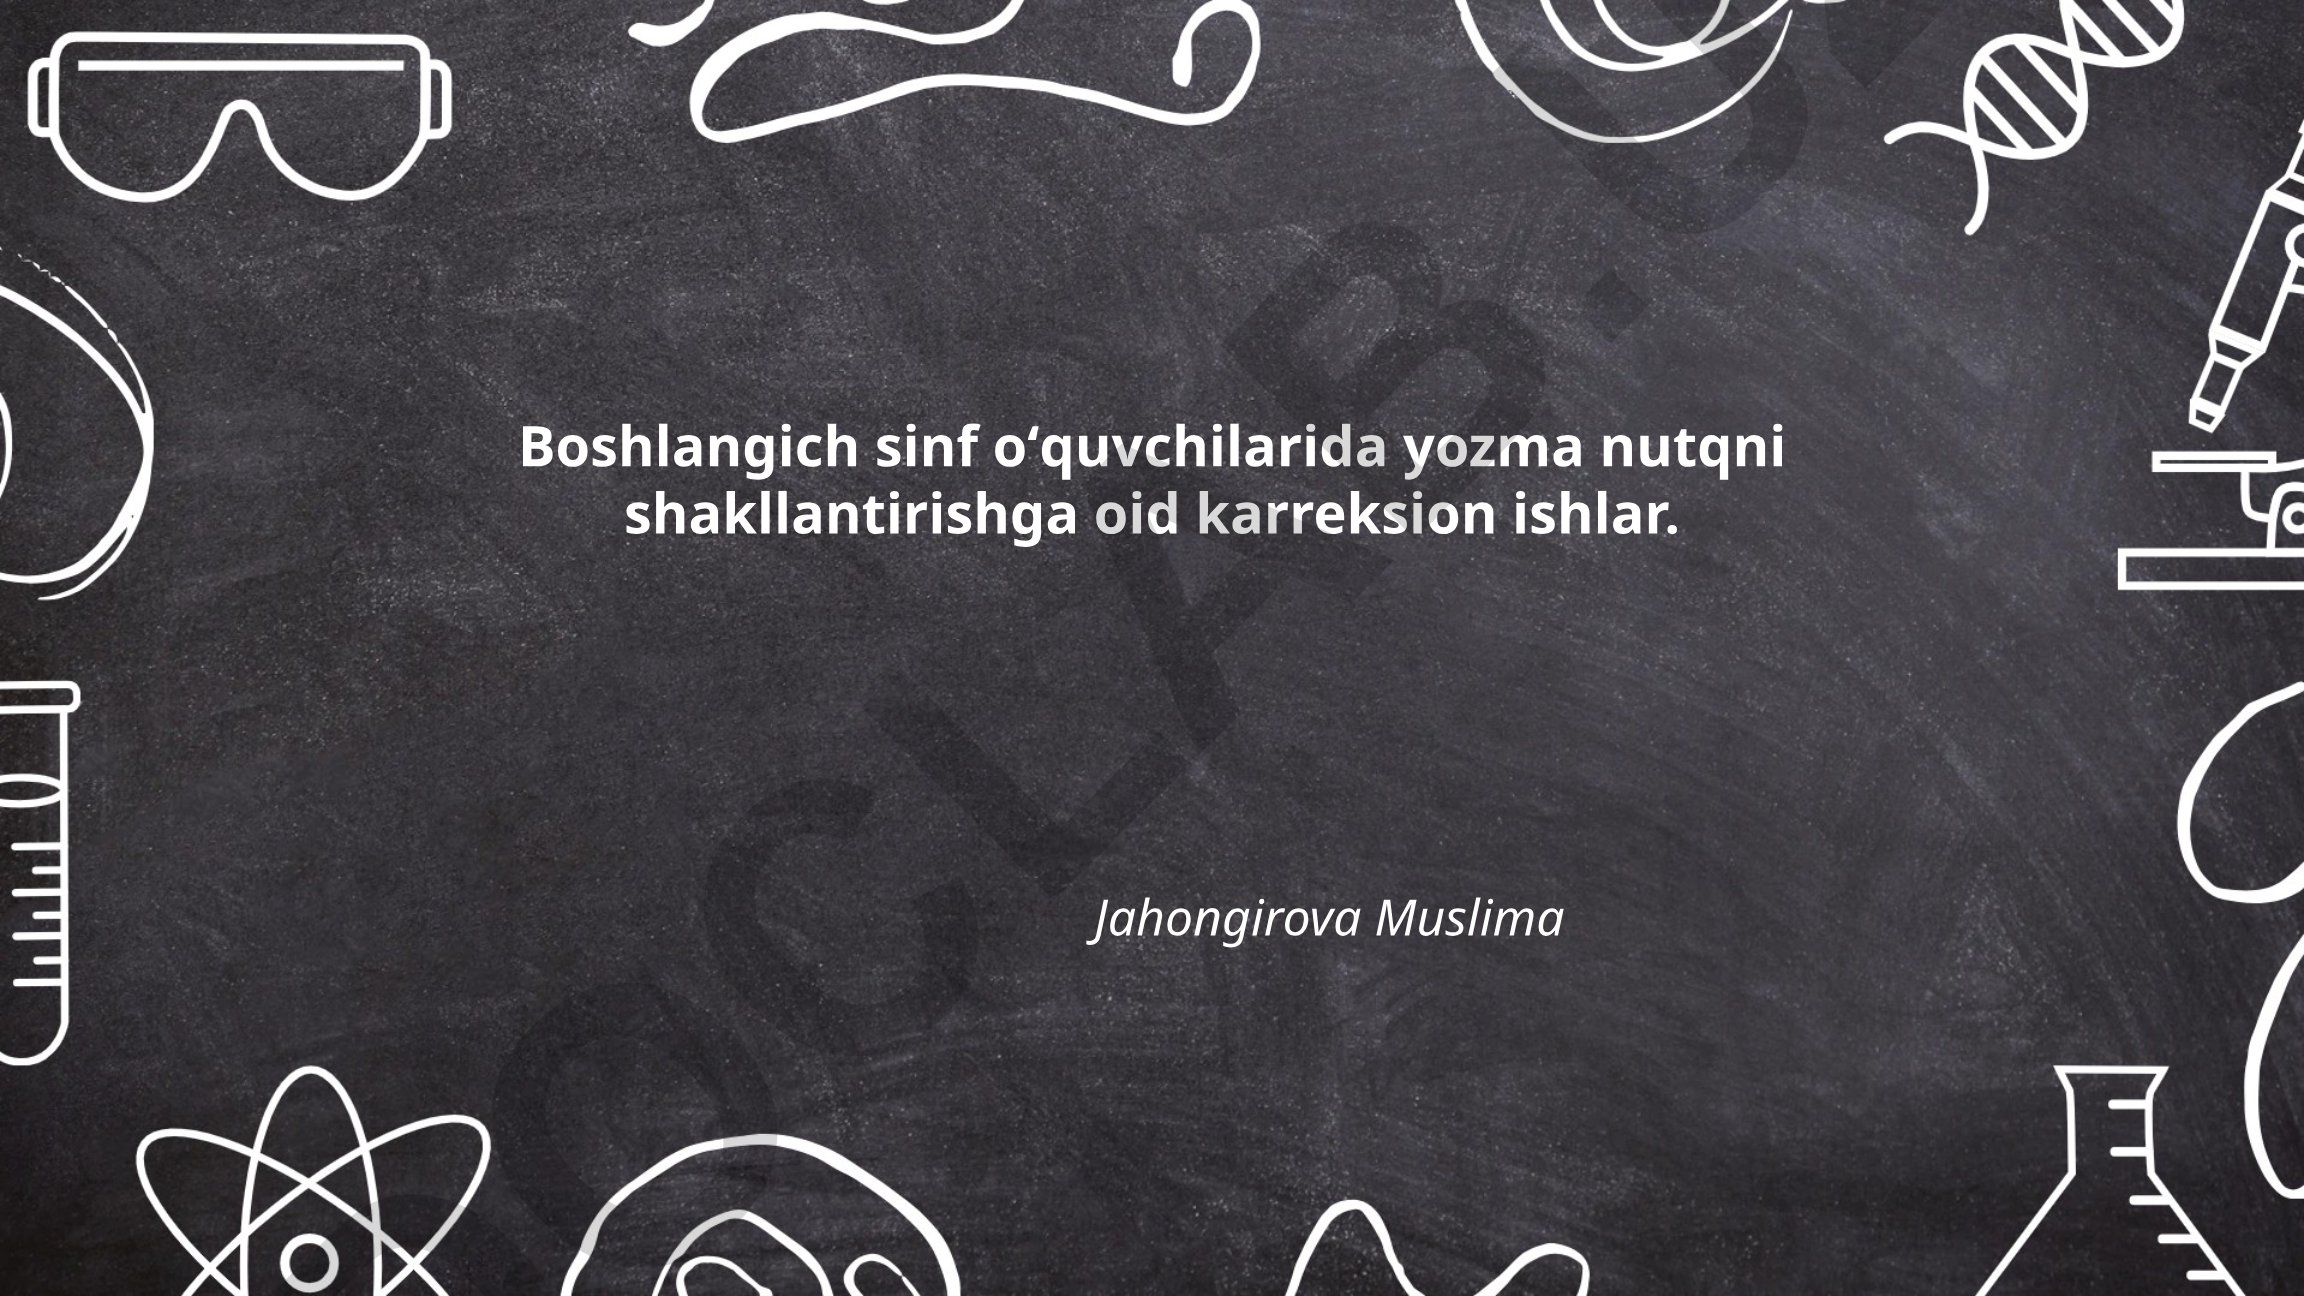 Boshlangich sinf o‘quvchilarida yozma nutqni
shakllantirishga oid karreksion ishlar.
Jahongirova Muslima